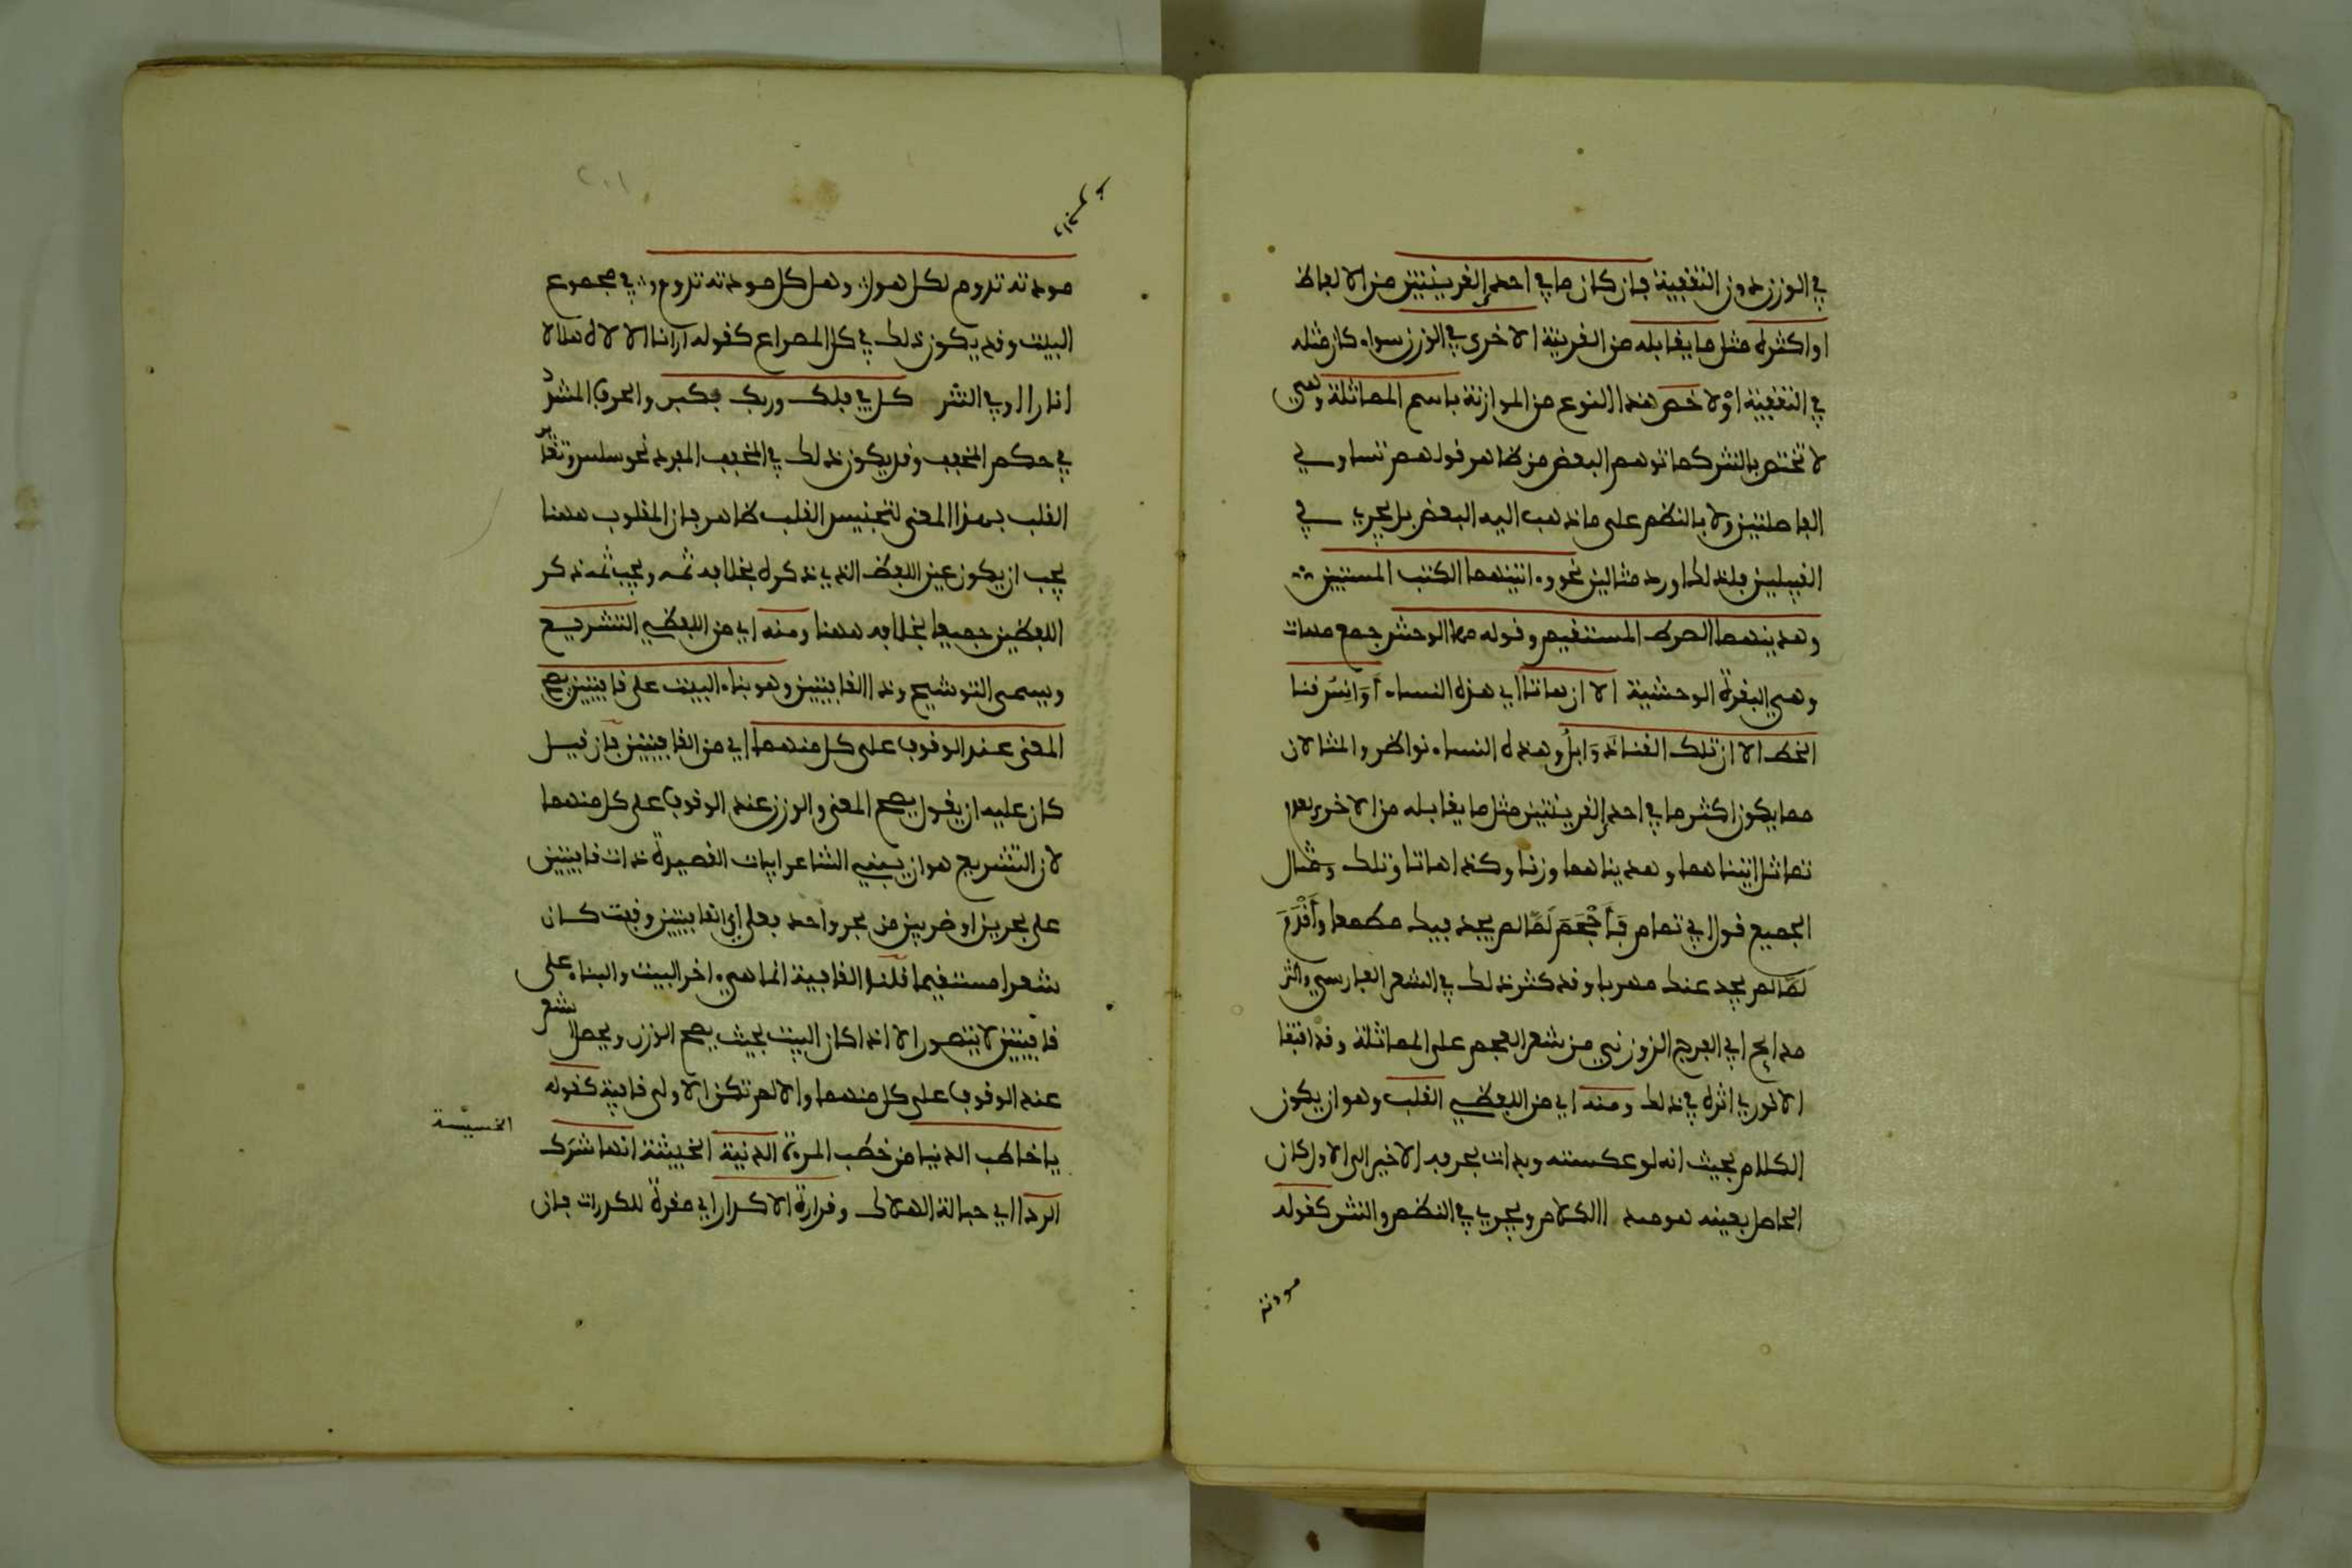 في الوزن دون التقفية فإن كان ما في احدى القرينتين من الالفاظ
او اكثره مثل ما يقابله من القرينة الاخرى في الوزن سواء كان مثله
في التقفية اوْ لا خص هذا النوع من الموازنة باسم المماثلة وهي
لا تختص بالنثر كما توهم البعض من ظاهر قولهم تساوي
الفاصلتين ولا بالنظم على ما ذهب اليه البعض بل يجري في
القبيلين فلذلك اورد مثالين نحو وءاتينهما الكتب المستبين
وهدينهما الصرط المستقيم وقوله مها الوحش جمع مهات
وهي البقرة الوحشية الا ان هاتا اي هذه النساء أوَانِسُ قنا
الخط الا ان تلك القناة ذوَابلُ وهذه النساء نواظر والمثالان
مما يكون اكثر ما في احدى القرينتين مثل ما يقابله من الاخرى لعدم
تماثل اتيناهما وهديناهما وزنا وكذا هاتا وتلك ومثال
الجميع قول ابي تمام فَأحْجَمَ لَمَّا لم يجد فيك مطمعا وأَقْدَمَ
لَمَّا لم يجد عنك مهربا وقد كثر ذلك في الشعر الفارسي واكثر
مدايح ابي الفرج الزوزني من شعر العجم على المماثلة وقد اقتفا
الانوري اثره في ذلك ومنه اي من اللفظي القلب وهو ان يكون
الكلام بحيث انه لو عكسته وبدات بحرفه الاخير الى الاول كان
الحاصل بعينه هو هذا الكلام ويجري في النظم والنثر كقوله
مودته
مودته تدوم لكل هول وهل كل مودته تدوم في مجموع
البيت وقد يكون ذلك في كل المصراع كقوله ارانا الاله هلالا
انارا وفي النثر كل في فلك وربك فكبر والحرف المشدد
في حكم المخفف وقد يكون ذلك في المخفف المفرد نحو سلس وتغاير
القلب بهذا المعنى لتجنيس القلب ظاهر فإن المقلوب ههنا
يجب ان يكون عين اللفظ الذي ذكره بخلافه ثمه ويجب ثمه ذكر
اللفظين جميعا بخلافه ههنا ومنه اي من اللفظي التشريع
ويسمى التوشيح وذا القافيتين وهو بناء البيت على قافيتين يصح
المعنى عند الوقوف على كل منهما اي من القافيتين فإن قيل
كان عليه ان يقول يصح المعنى والوزن عند الوقوف على كل منهما
لان التشريع هو ان يبني الشاعر ابيات القصيدة ذات قافيتين
على بحرين او ضربين من بحر واحد فعلى اي القافيتين وقفت كان
شعرا مستقيما قلنا القافية انما هي ءاخر البيت والبناء على
قافيتين لا يتصور الا اذا كان البيت بحيث يصح الوزن ويحصل الشعر
عند الوقوف على كل منهما والا لم تكن الاولى قافية كقوله
يا خاطب الدنيا من خطب المرءة الدنية الخبيثة انها شَرَك
الخسيسة
الردا اي حبالة الهلاك وقرارة الاكدار اي مقرة للكدرات فإن